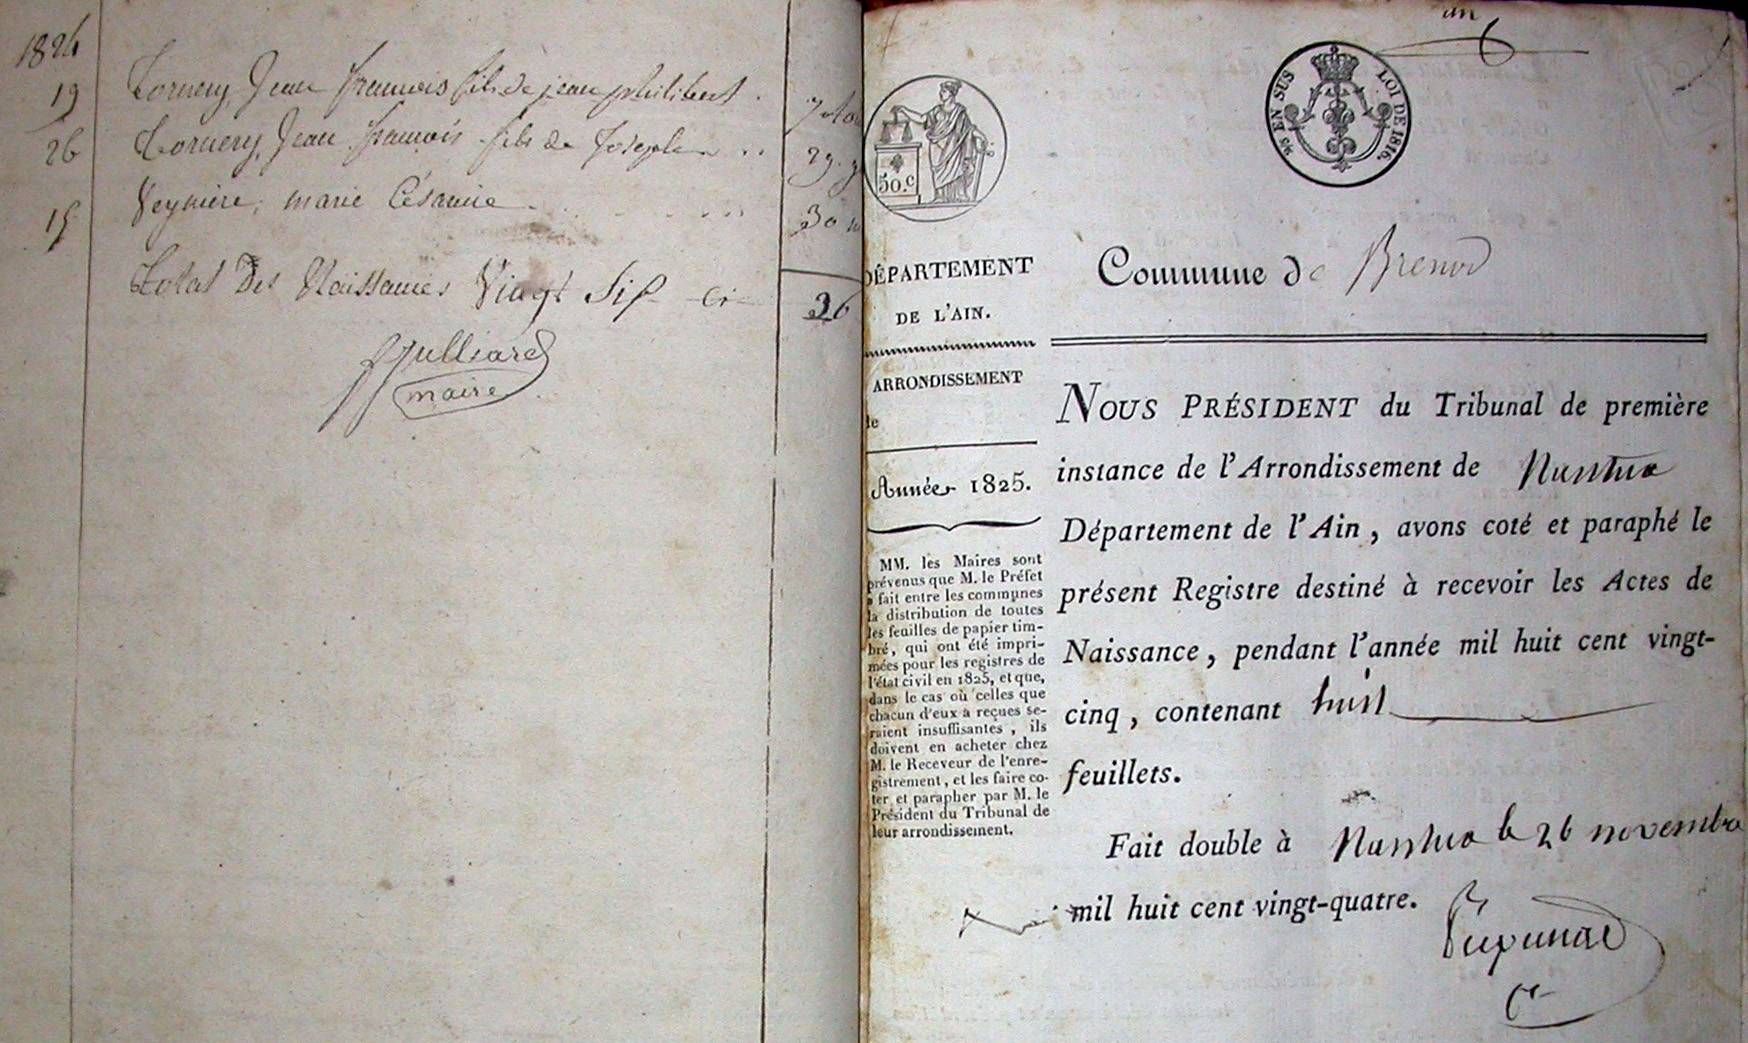 1824
19 Jean francois fils de jean philibert
26 Jean francois fils de Joseph 29.
15 Veyriere, marie Césarine 30
Total Des Naissances Vingt Six ci 26
Julliard
maire
6
50.c
EN SUS LOI DE 1816.
DÉPARTEMENT
DE L'AIN.
ARRONDISSEMENT
de
Année 1825.
MM. les Maires sont
prévenus que M. le Préfet
a fait entre les communes
la distribution de toutes
les feuilles de papier tim-
bré, qui ont été impri-
mées pour les registres de
l'état civil en 1825, et que,
dans le cas où celles que
chacun d'eux a reçues se-
raient insuffisantes, ils
doivent en acheter chez
M. le Receveur de l'enre-
gistrement, et les faire co-
ter et parapher par M. le
Président du Tribunal de
leur arrondissement.
Commune de Brenod
NOUS PRÉSIDENT du Tribunal de première
instance de l'Arrondissement de Nantua
Département de l'Ain, avons coté et paraphé le
présent Registre destiné à recevoir les Actes de
Naissance, pendant l'année mil huit cent vingt-
cinq, contenant huit
feuillets.
Fait double à Nantua le 26 novembre
mil huit cent vingt-quatre.